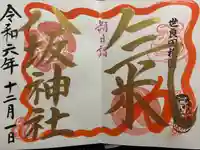 世良田村
氣
朔日詣
八坂神社
令和六年 十二月一日